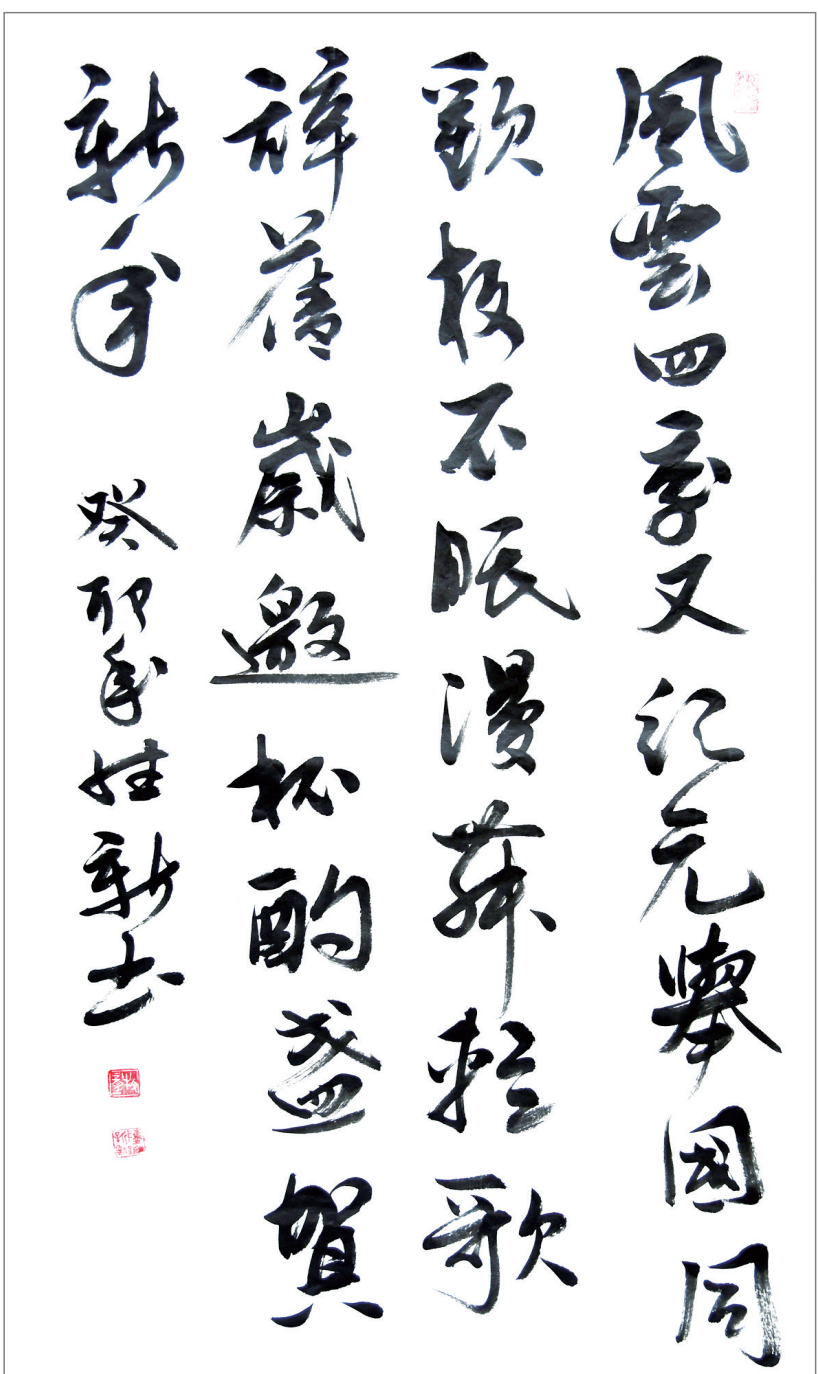 風雲四季又紀元舉國同
歡极不眠漫舞輕歌
辭舊歲邀杯酌盞賀
新年 癸卯年新书